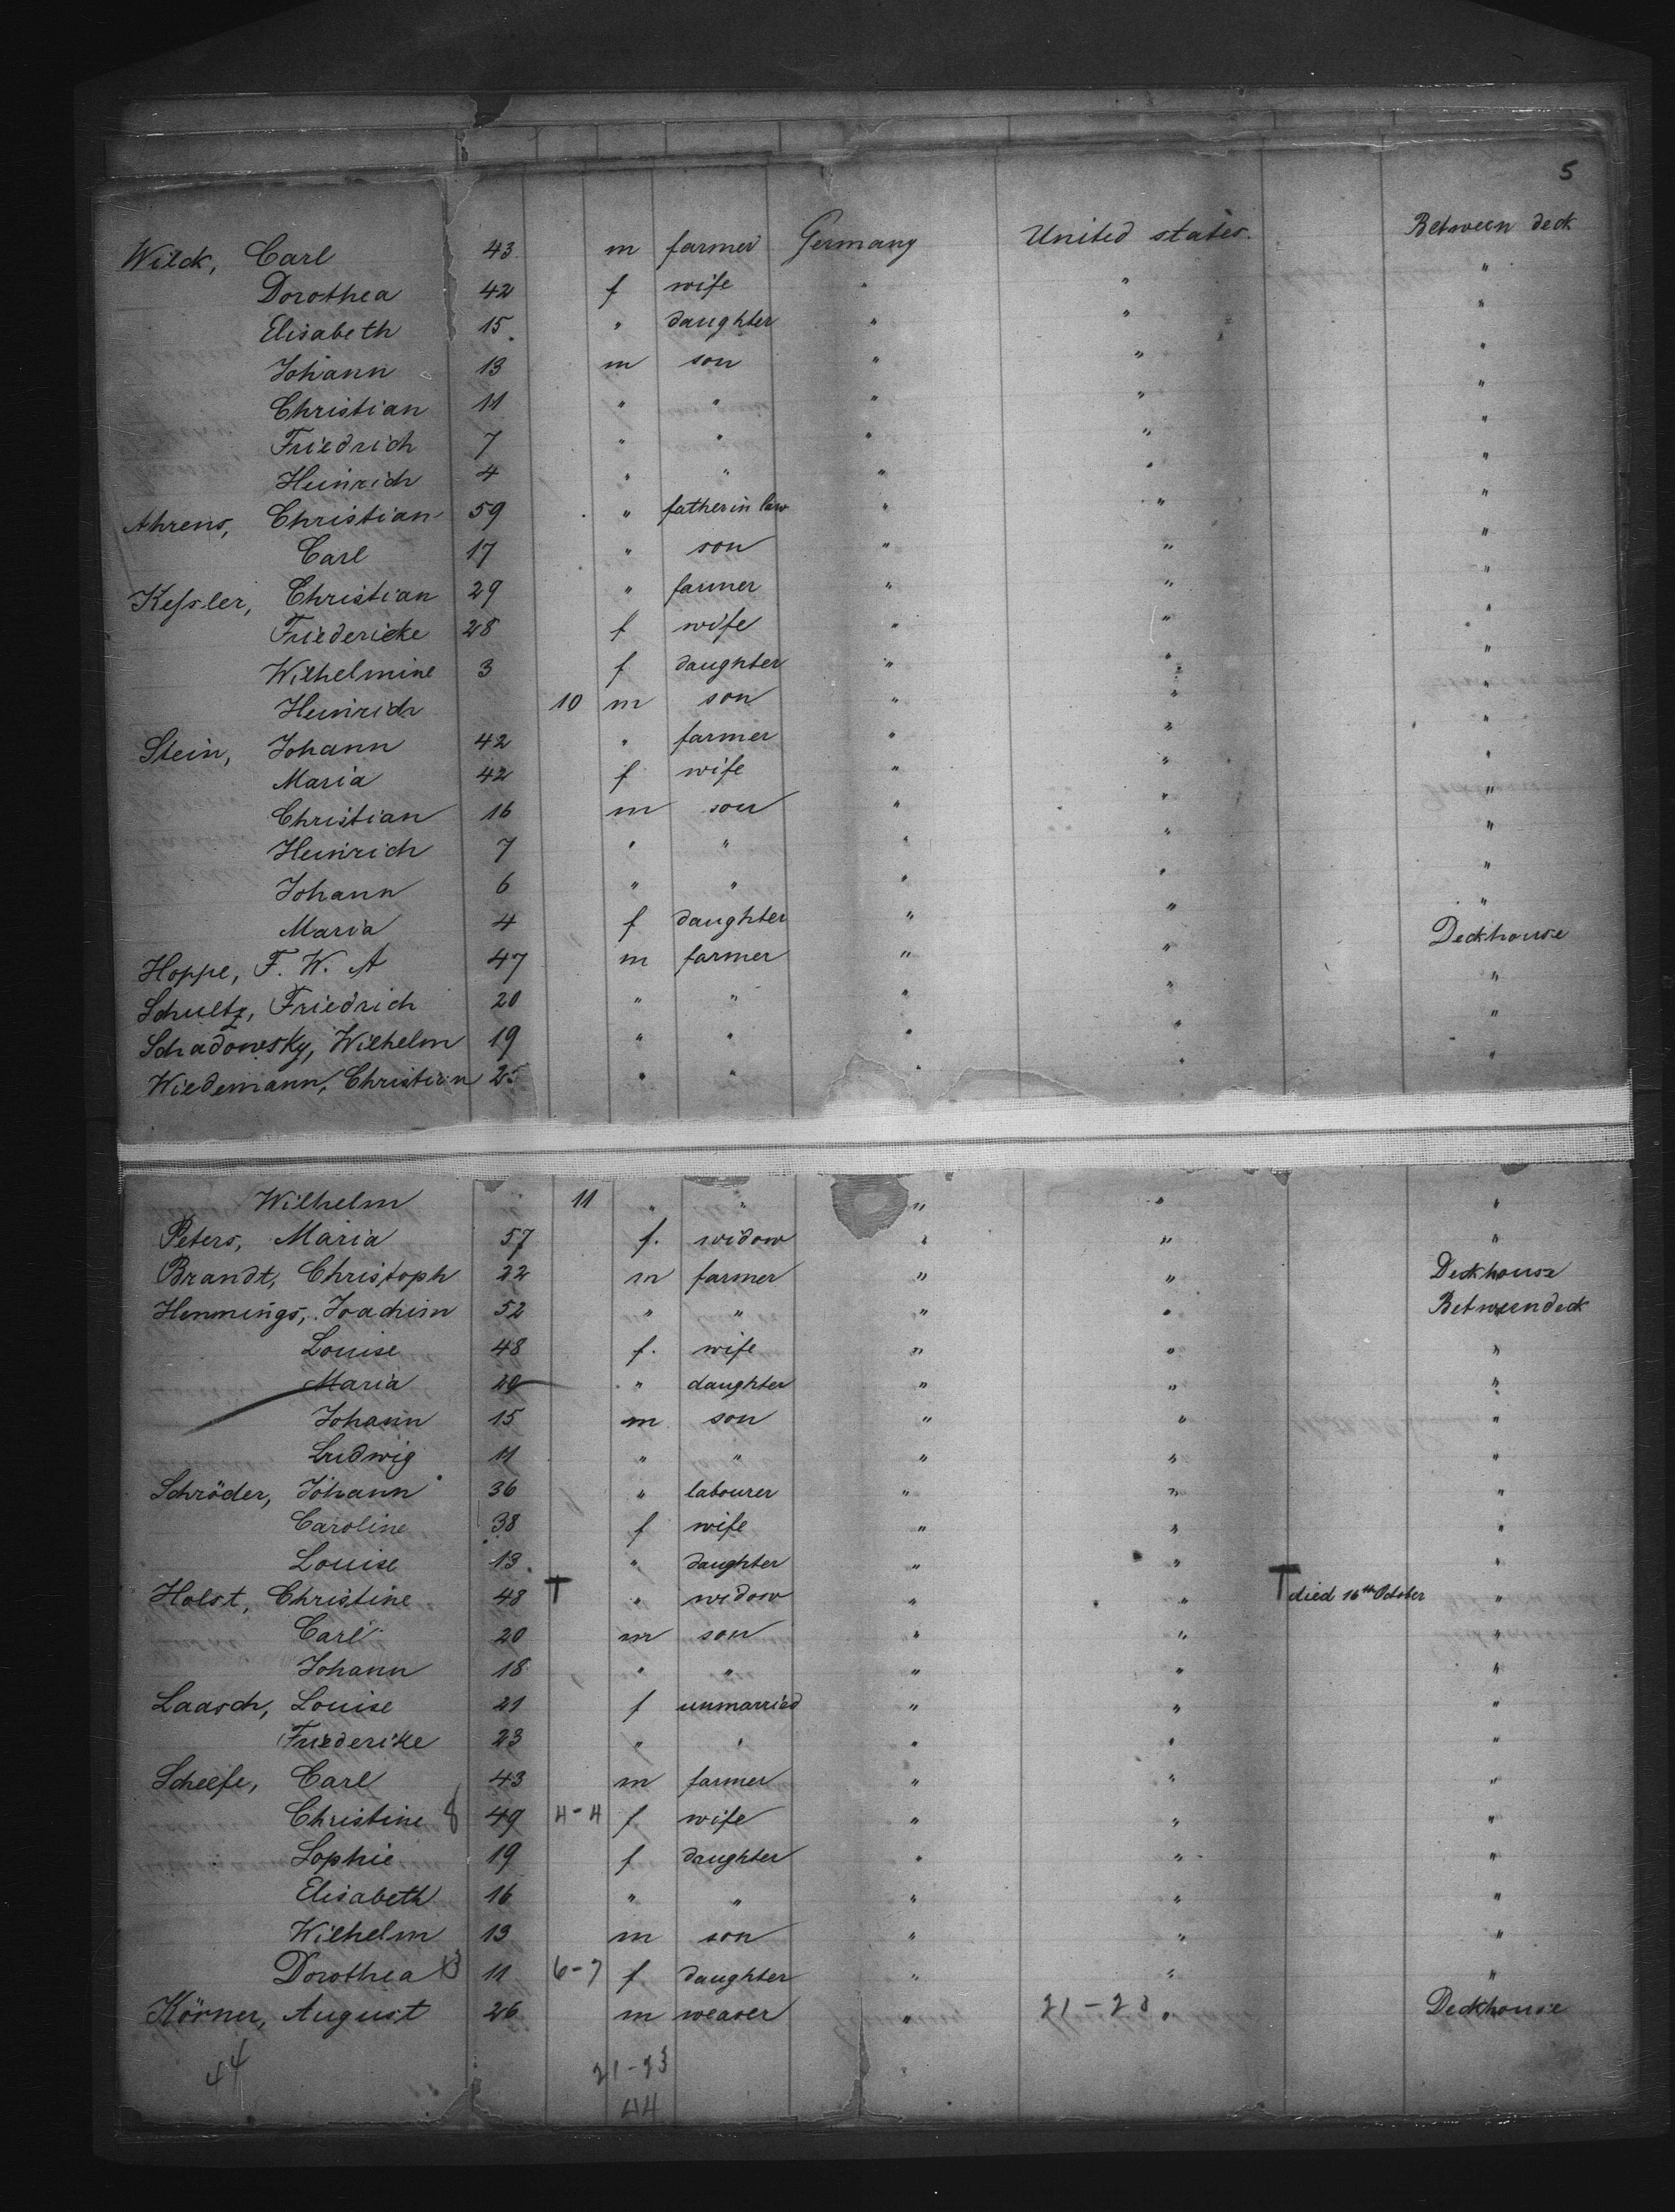 5
Wilck, Carl 43 m farmer Germany United states. Between deck
Dorothea 42 f wife " " "
Elisabeth 15. " daughter " " "
Johann 13 m son " " "
Christian 11 " " " " "
Friedrich 7 " " " " "
Heinrich 4 " " " " "
Ahrens, Christian 59 " father in law " " "
Carl 17 " son " " "
Keſsler, Christian 29 " farmer " " "
Friedericke 28 f wife " " "
Wilhelmine 3 f daughter " " "
Heinrich 10 m son " " "
Stein, Johann 42 " farmer " " "
Maria 42 f wife " " "
Christian 16 m son " " "
Heinrich 7 " " " " "
Johann 6 " " " " "
Maria 4 f daughter " " "
Hoppe, F. W. A 47 m farmer " " Deckhouse
Schultz, Friedrich 20 " " " " "
Schadowsky, Wilhelm 19 " " " " "
Wiedemann, Christian 25 " " " " "
Wilhelm 11 " " " " "
Peters, Maria 57 f. widow " " "
Brandt, Christoph 22 m farmer " " Deckhouse
Hennings, Joachim 52 " " " " Betweendeck
Louise 48 f. wife " " "
Maria 20 " daughter " " "
Johann 15 m son " " "
Ludwig 11 " " " " "
Schröder, Johann 36 " labourer " " "
Caroline 38 f wife " " "
Louise 13. " daughter " " "
Holst, Christine 48 T " widow " " T died 16th October "
Carl 20 m son " " "
Johann 18 " " " " "
Laasch, Louise 21 f unmarried " " "
Friederike 23 " " " " "
Scheefe, Carl 43 m farmer " " "
Christine 8 49 4-4 f wife " " "
Sophie 19 f daughter " " "
Elisabeth 16 " " " " "
Wilhelm 13 m son " " "
Dorothea 13 11 6-7 f daughter " " "
Körner, August 26 m weaver " 21-23 " Deckhouse
44 21-23
44